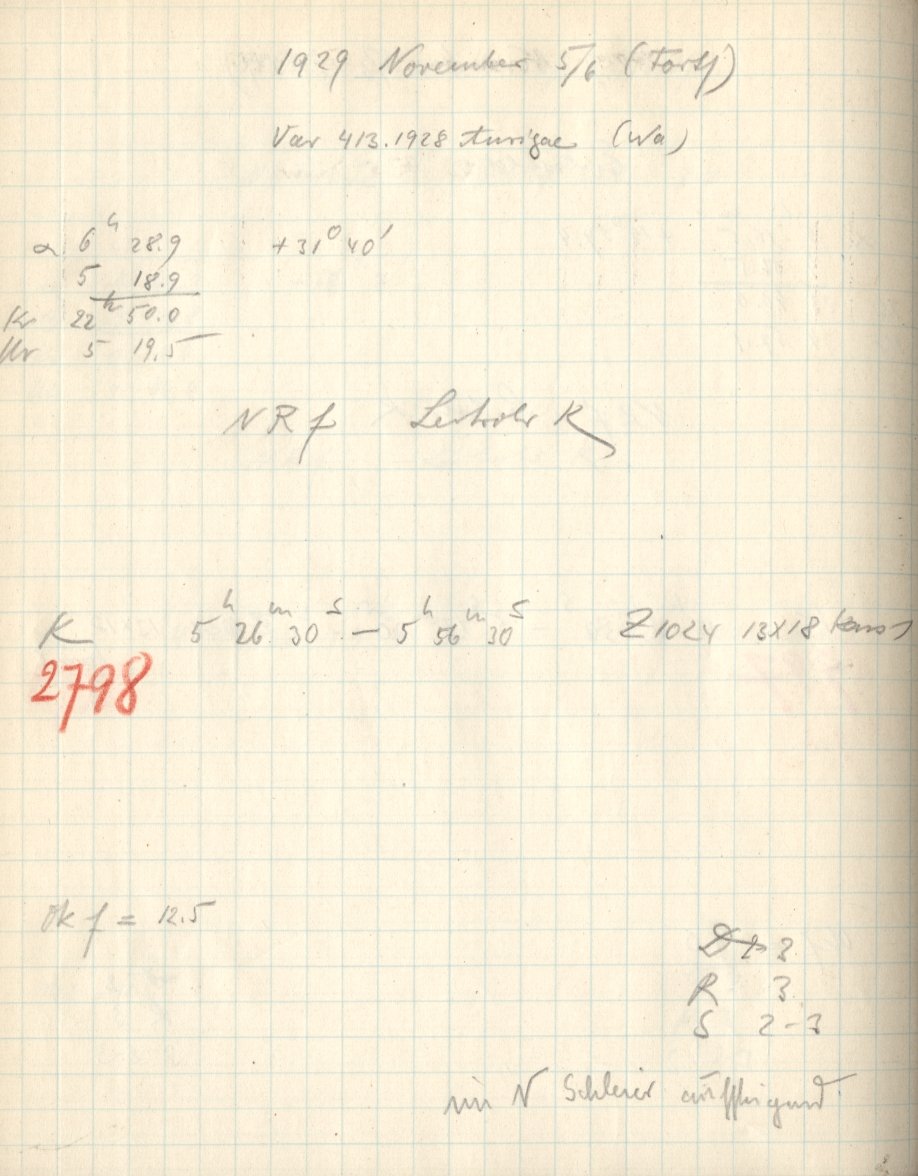 1929 November 5/6 (Forts)
Var 413.1928 Aurigae (Wa)
α 6h 28.9 +31° 40'
5 18.9
Kr 22h 50.0
Ur 5 19.5
NRf Leitrohr K
K 5h 26m 30s — 5h 56m 30s Z1024 13X18
2798
Ok f = 12.5
D 2
R 3
S 2-3
im N Schleier aufsteigend